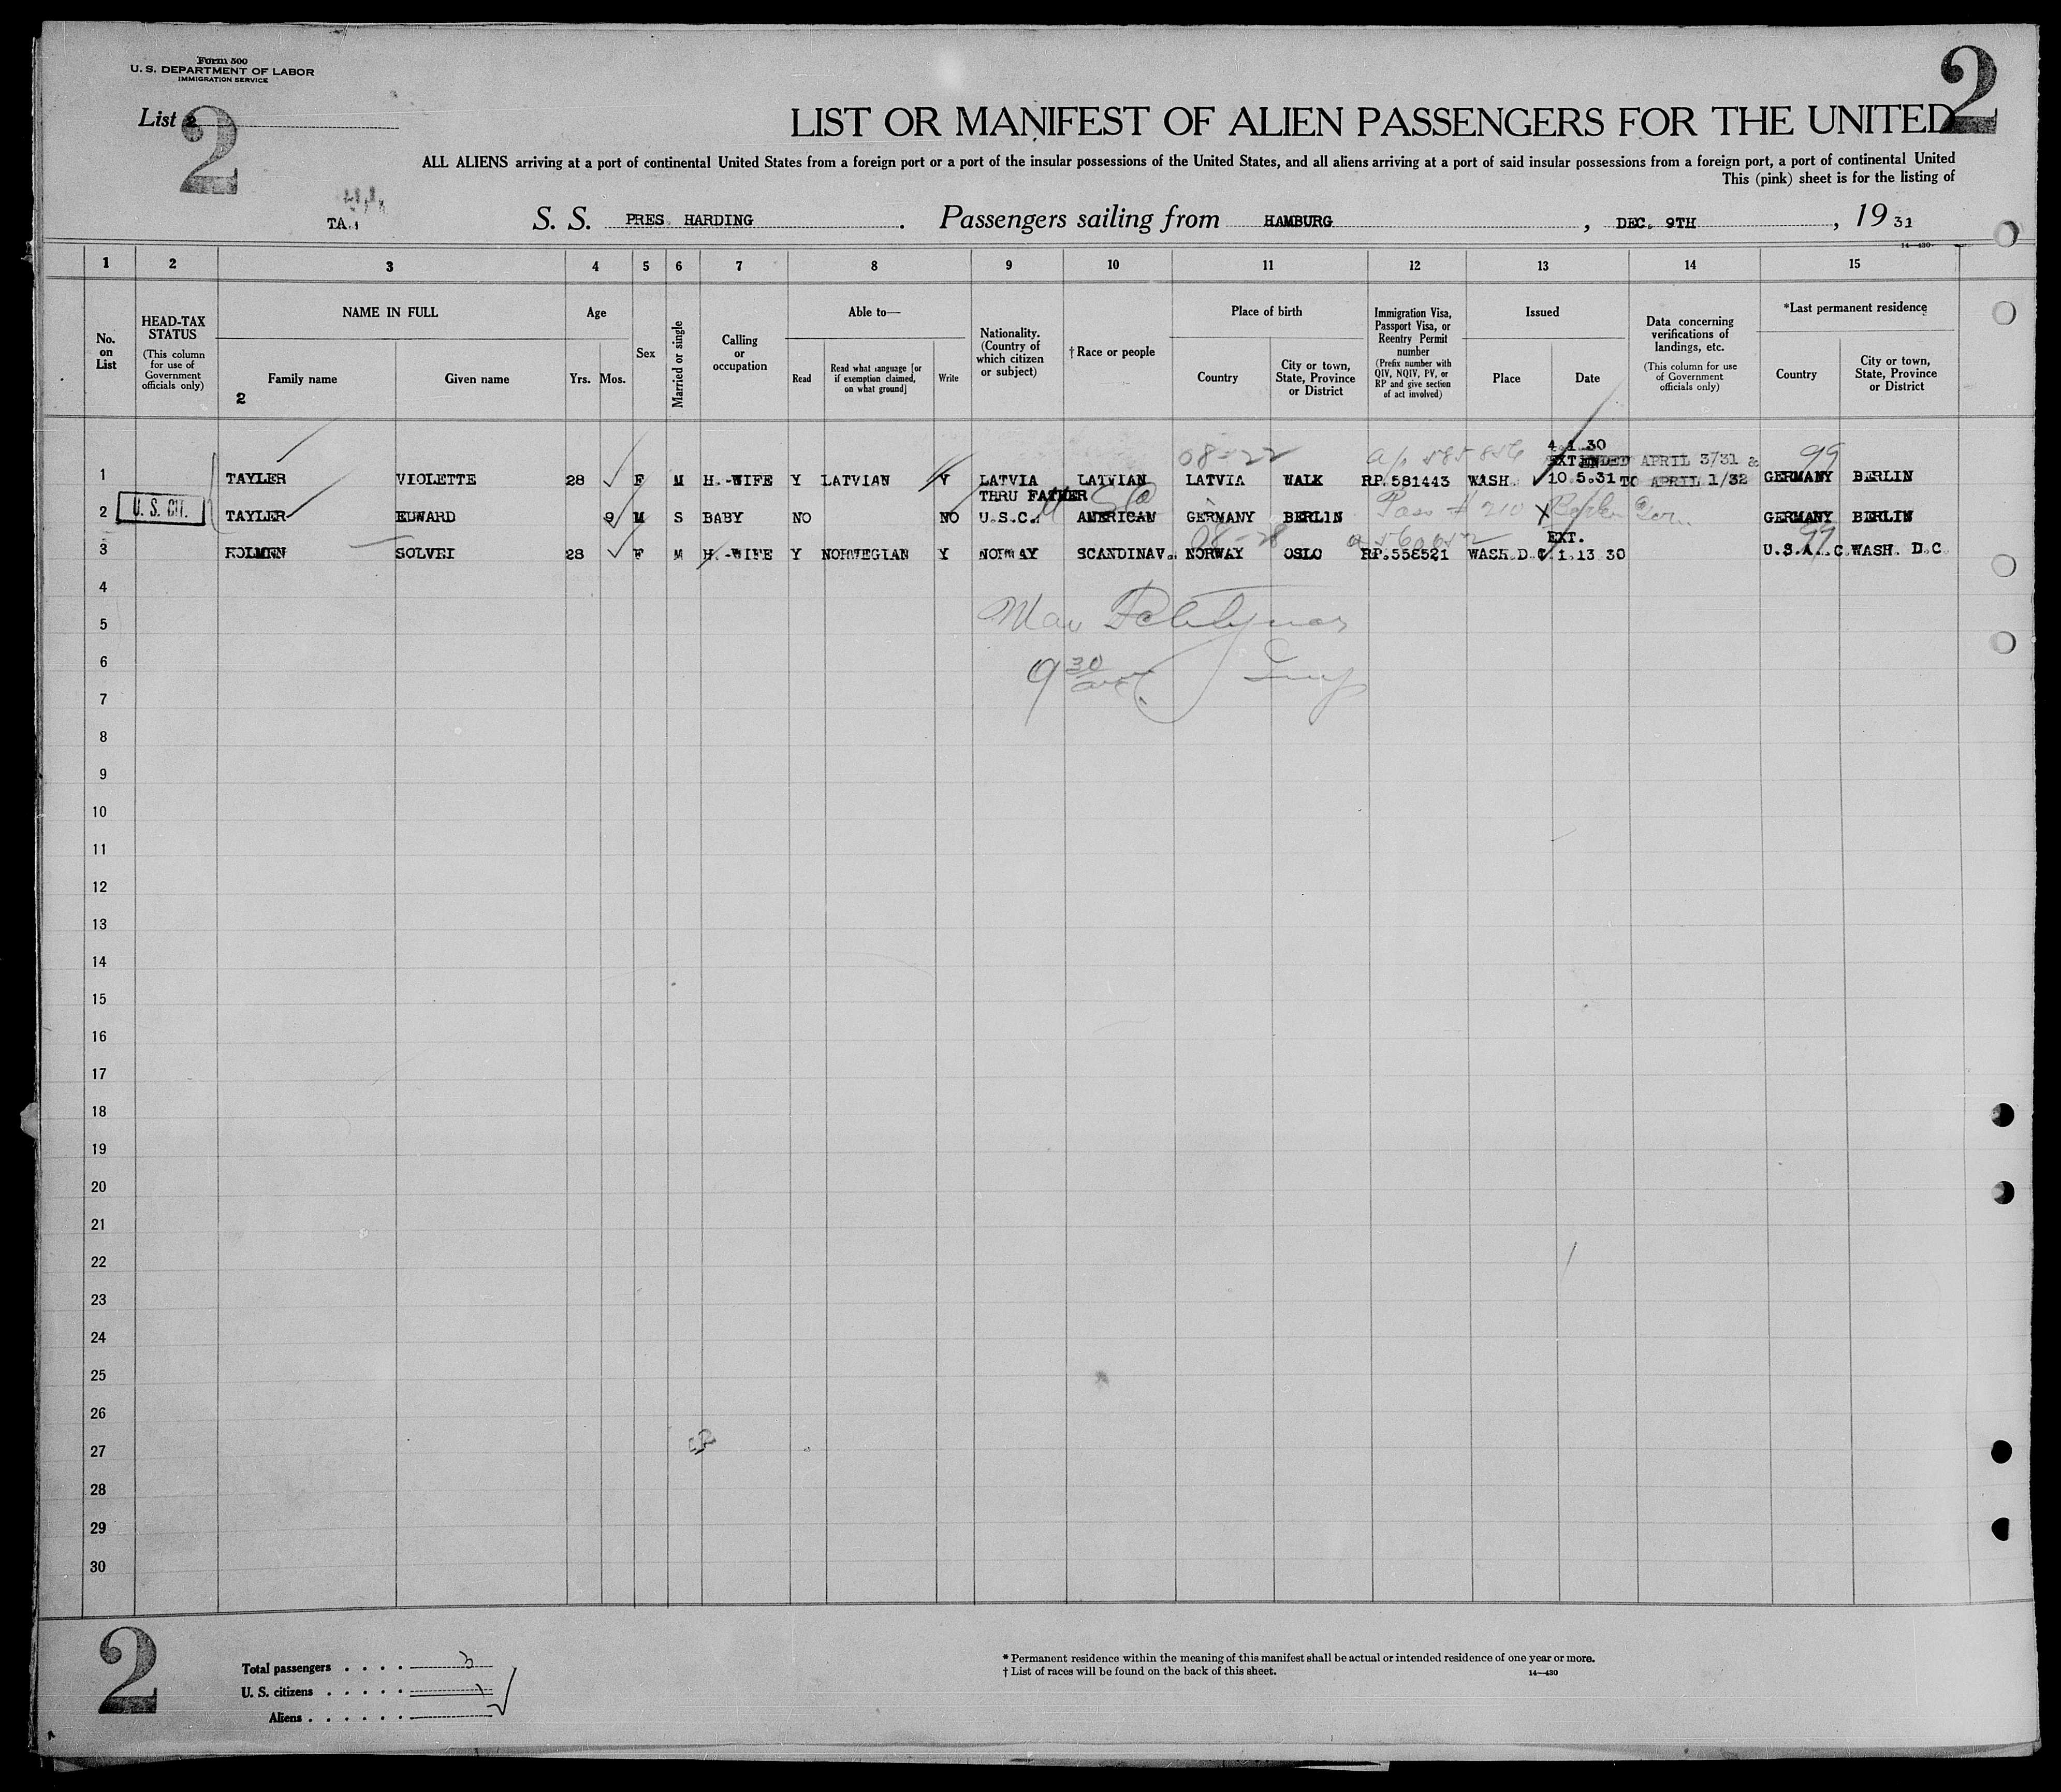 Form 500
U. S. DEPARTMENT OF LABOR
IMMIGRATION SERVICE
2
List 2
2
LIST OR MANIFEST OF ALIEN PASSENGERS FOR THE UNITED
ALL ALIENS arriving at a port of continental United States from a foreign port or a port of the insular possessions of the United States, and all aliens arriving at a port of said insular possessions from a foreign port, a port of continental United
This (pink) sheet is for the listing of
TA.
S. S. PRES. HARDING. Passengers sailing from HAMBURG, DEC. 9TH, 19 31
14—430
1 2 3 4 5 6 7 8 9 10 11 12 13 14 15
No. on List
HEAD-TAX STATUS
(This column for use of Government officials only)
NAME IN FULL
Family name
Given name
2
Age
Yrs. Mos.
Sex
Married or single
Calling or occupation
Able to—
Read
Read what language [or if exemption claimed, on what ground]
Write
Nationality. (Country of which citizen or subject)
† Race or people
Place of birth
Country
City or town, State, Province or District
Immigration Visa, Passport Visa, or Reentry Permit number
(Prefix number with QIV, NQIV, PV, or RP and give section of act involved)
Issued
Place
Date
Data concerning verifications of landings, etc.
(This column for use of Government officials only)
*Last permanent residence
Country
City or town, State, Province or District
08-22 4.1.30 99
EXTENDED APRIL 3/31 &
1 TAYLER VIOLETTE 28 F M H.-WIFE Y LATVIAN Y LATVIA LATVIAN LATVIA WALK RP.581443 WASH. 10.5.31 TO APRIL 1/32 GERMANY BERLIN
THRU FATHER
U. S. CIT.
2 TAYLER EDWARD 9 M S BABY NO NO U.S.C. AMERICAN GERMANY BERLIN Pass # 210 GERMANY BERLIN
08-28 EXT. 99
3 HOLMEN SOLVEI 28 F M H.-WIFE Y NORWEGIAN Y NORWAY SCANDINAV. NORWAY OSLO RP.558521 WASH.D.C. 1.13 30 U.S.A. WASH. D.C
4
5
6 9 30
7
8
9
10
11
12
13
14
15
16
17
18
19
20
21
22
23
24
25
26
27
28
29
30
2
Total passengers . . . . 3
U. S. citizens . . . . . 1
Aliens . . . . . .
* Permanent residence within the meaning of this manifest shall be actual or intended residence of one year or more.
† List of races will be found on the back of this sheet.
14—430